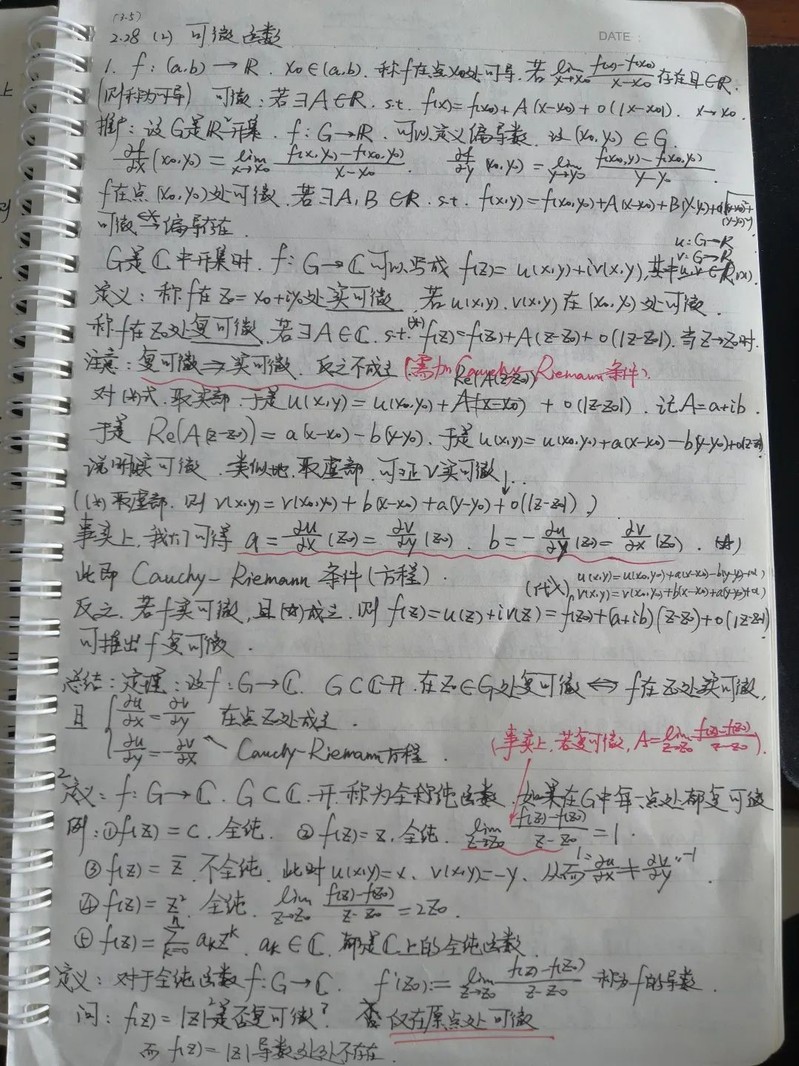 (3.5)
2.28 (2) 可微函数
DATE
1. f: (a,b) → R. x₀∈(a,b). 称f在点x₀处可导. 若 lim_{x→x₀} (f(x)-f(x₀))/(x-x₀) 存在且∈R.
(则称为可导) 可微: 若∃A∈R. s.t. f(x)=f(x₀)+A(x-x₀)+o(|x-x₀|). x→x₀.
推广: 设G是R²开集. f: G→R. 可以定义偏导数. 设(x₀,y₀)∈G.
∂f/∂x (x₀,y₀) = lim_{x→x₀} (f(x,y₀)-f(x₀,y₀))/(x-x₀). ∂f/∂y (x₀,y₀) = lim_{y→y₀} (f(x₀,y)-f(x₀,y₀))/(y-y₀).
f在点(x₀,y₀)处可微. 若∃A,B∈R. s.t. f(x,y)=f(x₀,y₀)+A(x-x₀)+B(y-y₀)+o(√(x-x₀)²+(y-y₀)²)
可微 偏导存在.
u: G→R
v: G→R
G是C中开集时. f: G→C可以写成 f(z)=u(x,y)+iv(x,y), 其中u,v∈R
定义: 称f在z₀=x₀+iy₀处实可微. 若u(x,y).v(x,y)在(x₀,y₀)处可微.
称f在z₀处复可微. 若∃A∈C. s.t. (*) f(z)=f(z₀)+A(z-z₀)+o(|z-z₀|). 当z→z₀时.
注意: 复可微⇒实可微. 反之不成立 (需加Cauchy-Riemann条件).
Re(A(z-z₀))
对(*)式. 取实部. 于是 u(x,y)=u(x₀,y₀)+ +o(|z-z₀|). 记A=a+ib.
于是 Re(A(z-z₀))=a(x-x₀)-b(y-y₀). 于是u(x,y)=u(x₀,y₀)+a(x-x₀)-b(y-y₀)+o(|z-z₀|)
说明实可微. 类似地. 取虚部. 可证v实可微.
((*)取虚部. 则v(x,y)=v(x₀,y₀)+b(x-x₀)+a(y-y₀)+o(|z-z₀|).)
事实上, 我们可得 a=∂u/∂x(z₀)=∂v/∂y(z₀). b=-∂u/∂y(z₀)=∂v/∂x(z₀). (☆)
此即 Cauchy-Riemann 条件(方程).
(代入) u(x,y)=u(x₀,y₀)+a(x-x₀)-b(y-y₀)+o( )
v(x,y)=v(x₀,y₀)+b(x-x₀)+a(y-y₀)+o( )
反之. 若f实可微, 且(☆)成立. 则f(z)=u(z)+iv(z)=f(z₀)+(a+ib)(z-z₀)+o(|z-z₀|)
可推出f复可微.
总结: 定理: 设f: G→C. G⊂C开. 在z₀∈G处复可微⇔f在z₀处实可微,
且 { ∂u/∂x=∂v/∂y 在点z₀处成立.
∂u/∂y=-∂v/∂x Cauchy-Riemann方程.
(事实上, 若复可微, A=lim_{z→z₀} (f(z)-f(z₀))/(z-z₀)).
2 定义: f: G→C. G⊂C 开. 称为全纯函数. 如果在G中每一点处都复可微
例: ① f(z)=c. 全纯. ② f(z)=z. 全纯. lim_{z→z₀} (f(z)-f(z₀))/(z-z₀)=1.
③ f(z)=z̄. 不全纯. 此时u(x,y)=x. v(x,y)=-y. 从而 1=∂u/∂x≠∂v/∂y=-1.
④ f(z)=z². 全纯. lim_{z→z₀} (f(z)-f(z₀))/(z-z₀)=2z₀.
⑤ f(z)=∑_{k=0}^{n} aₖzᵏ. aₖ∈C. 都是C上的全纯函数.
定义: 对于全纯函数f: G→C. f'(z₀):=lim_{z→z₀} (f(z)-f(z₀))/(z-z₀) 称为f的导数.
问: f(z)=|z|²是否复可微? 否 仅在原点处可微
而 f(z)=|z| 导数处处不存在.